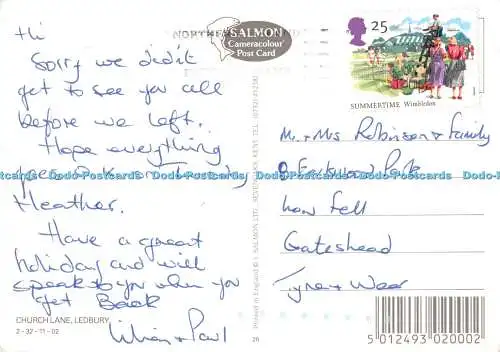 Hi
Sorry we didn't
get to see you all
before we left.
Hope everything
Heather.
Have a great
holiday and will
speak to you when you
get Back
Lilian + Paul
CHURCH LANE, LEDBURY
2-32-11-02
NORTH
SALMON
Cameracolour
Post Card
Printed in England © J. SALMON LTD., SEVENOAKS, KENT. TEL: (0732) 452381
26
25
SUMMERTIME Wimbledon
Mr + Mrs Robinson + Family
9
Low Fell
Gateshead
Tyne + Wear
5 012493 020002
Dodo-Postcards Dodo-Postcards Dodo-Postcards Dodo-Postcards
Dodo-Postcards Dodo-Postcards Dodo-Postcards Dodo-Postcards